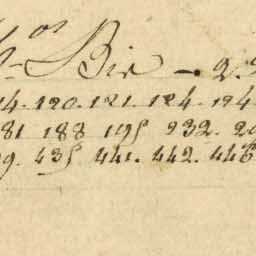 os
Bir - 2.
14. 120. 121. 124. 194
81 188 195 232. 2
9. 435 441. 442. 446